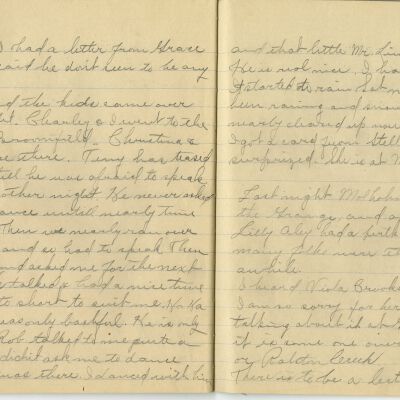 I had a letter from Grace
said he don't seem to be any
nd the kids came over
t. Charley & I went to the
Broomfield. Christina &
re there. Tony has teased
till he was afraid to speak
other night. He never asked
dance untill nearly time
Then we nearly ran our
and so had to speak then
and asked me for the next
talked & had a nice time
to short to suit me. Ha Ha
was only bashful. He is only
Rob talked to me quite a
didn't ask me to dance
was there. I danced with him
and that little Mr. Lin
He is real nice. I ha
It started to rain
been raining and
nearly cleared up
I got a card from
surprized. She is at
Last night
the Grange, and
Lilly Aley had a birth
many folks were th
awhile.
I heard Viola Brooks
I am so sorry for her
talking about it at
it is some one over
or Ralston Creek
There is to be a